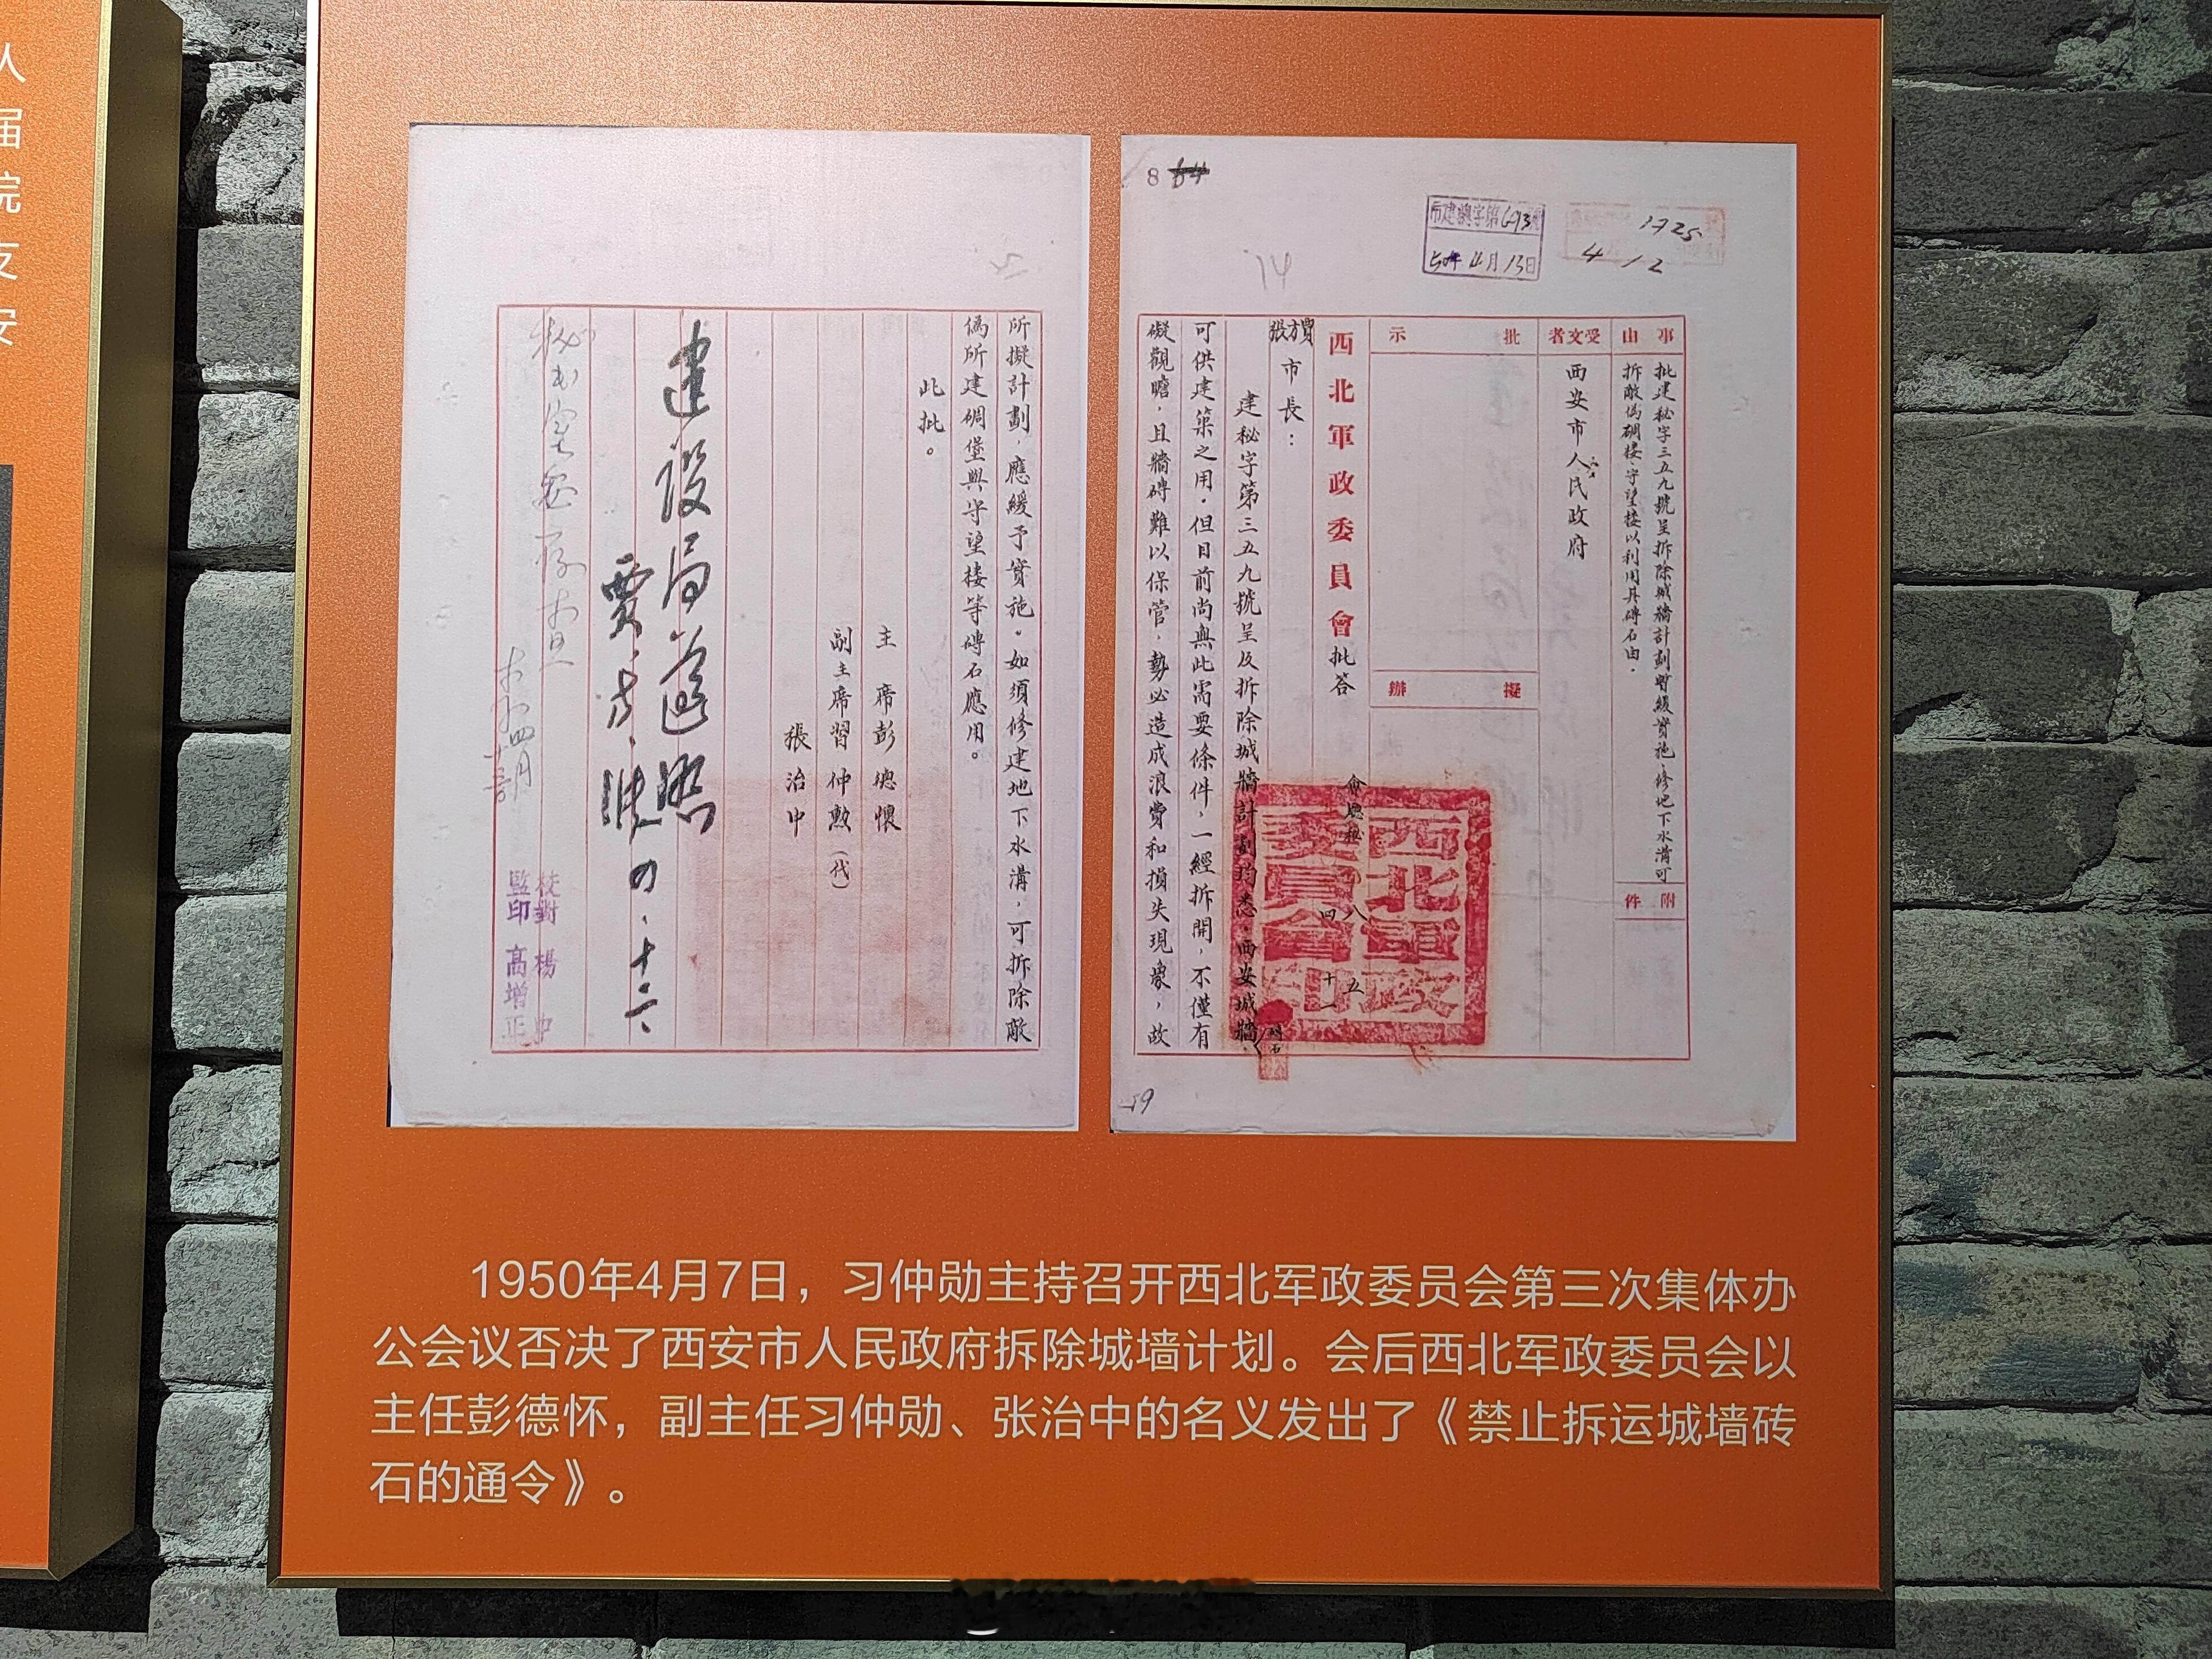 人
届
院
支
安
8
市建總字第693號
50年4月13日
1725
4 12
14
事由
批建秘字三五九號呈拆除城牆計劃暫緩實施，修地下水溝可
拆敵偽碉樓，守望樓以利用其磚石由。
附件
受文者
西安市人民政府
批示
擬辦
西北軍政委員會批答
會總秘
八五
四十一
西北軍政委員會印
賈
方
張
市長：
建秘字第三五九號呈及拆除城牆計劃均悉，西安城牆，
可供建築之用，但目前尚無此需要條件，一經拆開，不僅有
礙觀瞻，且牆磚難以保管，勢必造成浪費和損失現象，故
59
所擬計劃，應緩予實施。如須修建地下水溝，可拆除敵
偽所建碉堡與守望樓等磚石應用。
此批。
主席彭德懷
副主席習仲勲（代）
張治中
建設局遵照
賈、方、張 四、十三、
秘書室
四月
校對 楊中
監印 高增正
1950年4月7日，习仲勋主持召开西北军政委员会第三次集体办
公会议否决了西安市人民政府拆除城墙计划。会后西北军政委员会以
主任彭德怀，副主任习仲勋、张治中的名义发出了《禁止拆运城墙砖
石的通令》。